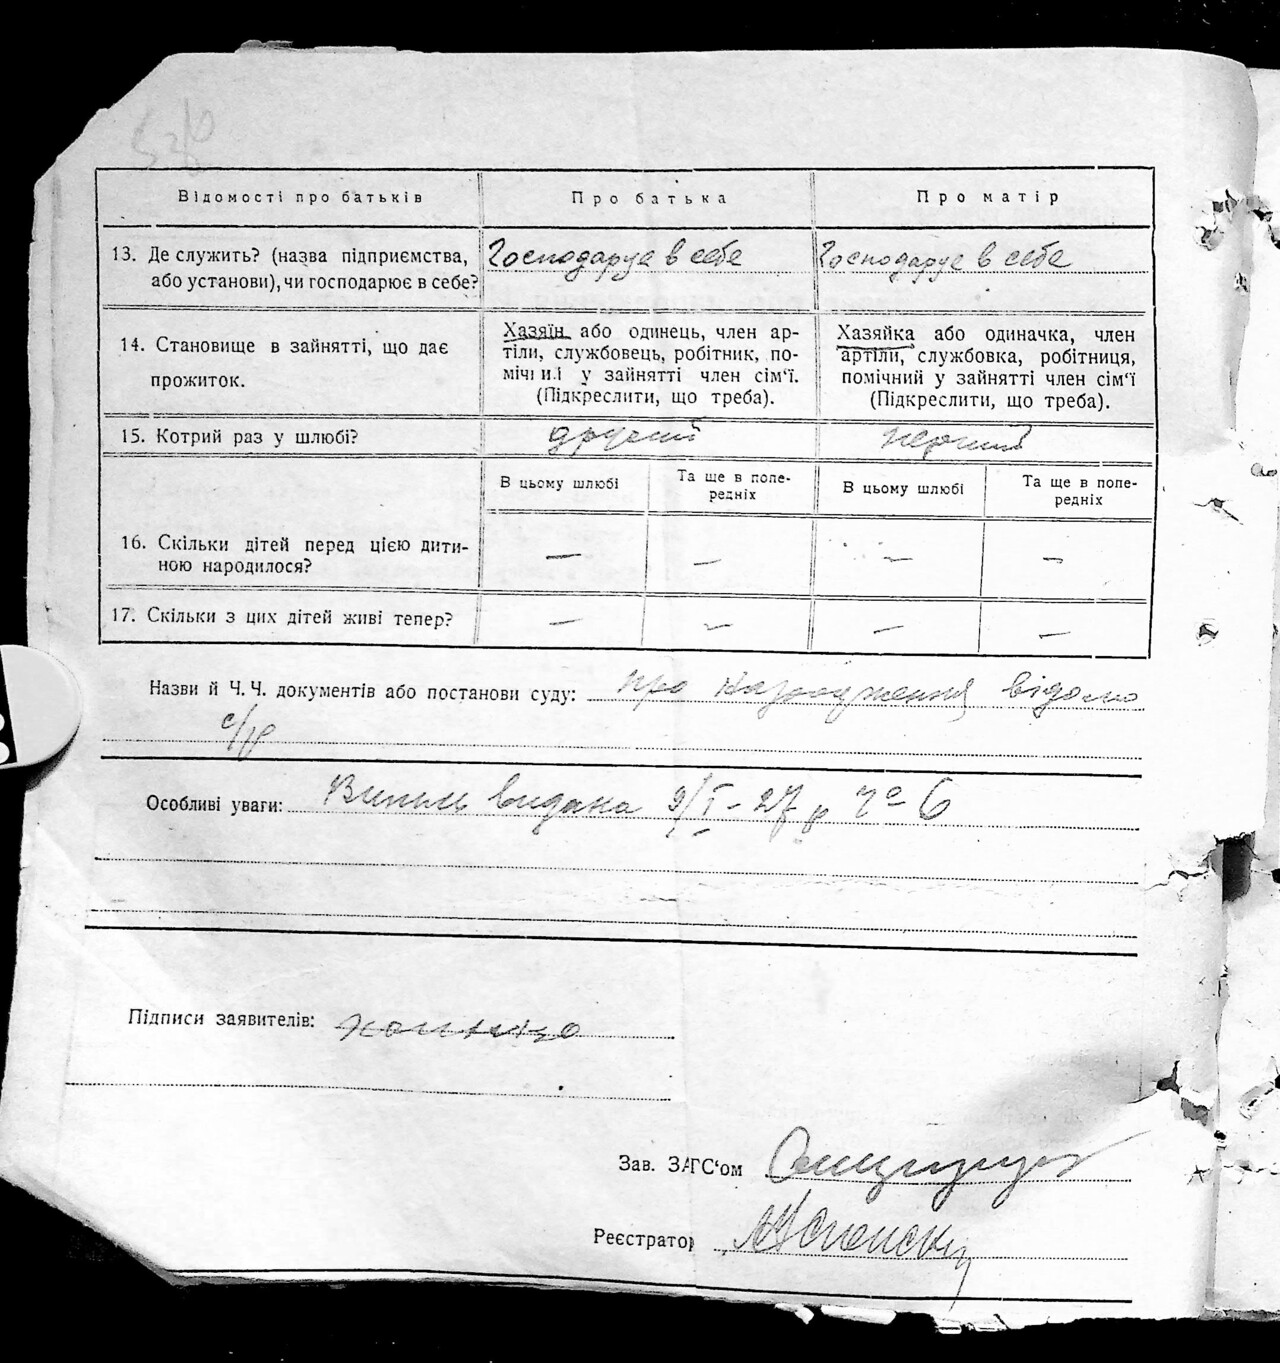 Відомості про батьків Про батька Про матір
13. Де служить? (назва підприємства, або установи), чи господарює в себе? Господарує в себе Господарує в себе
14. Становище в зайнятті, що дає прожиток.
Хазяїн або одинець, член ар-
тіли, службовець, робітник, по-
мічний у зайнятті член сім'ї.
(Підкреслити, що треба).
Хазяйка або одиначка, член
артіли, службовка, робітниця,
помічний у зайнятті член сім'ї
(Підкреслити, що треба).
15. Котрий раз у шлюбі? другий перший
В цьому шлюбі Та ще в попе-
редніх В цьому шлюбі Та ще в попе-
редніх
16. Скільки дітей перед цією дити-
ною народилося? — — — —
17. Скільки з цих дітей живі тепер? — — — —
Назви й Ч. Ч. документів або постанови суду: про народження відомо
с/р
Особливі уваги: Випись видана 9/I-27 р 6
Підписи заявителів:
Зав. ЗАГС'ом
Реєстратор